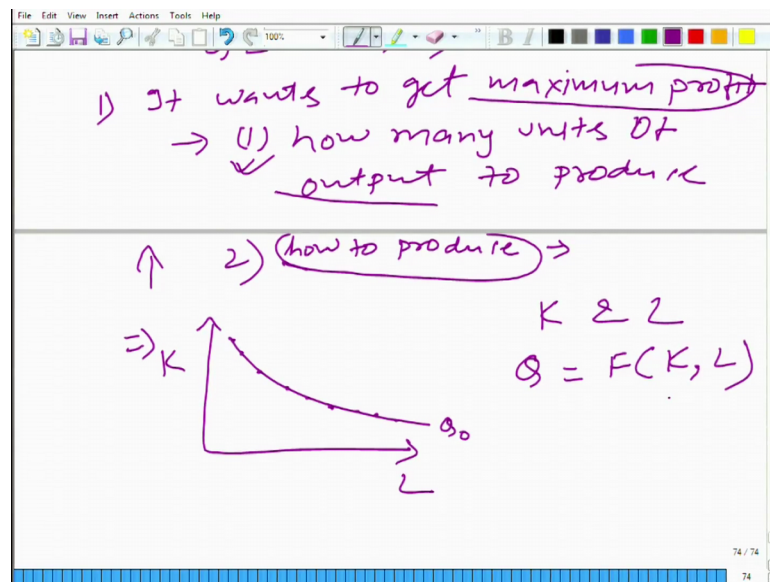 File Edit View Insert Actions Tools Help
100%
B I
1) It wants to get maximum profit
→ (1) how many units of
output to produce
↑ 2) how to produce →
K & L
Q = F(K, L)
⇒ K
Q₀
L
74 / 74
74